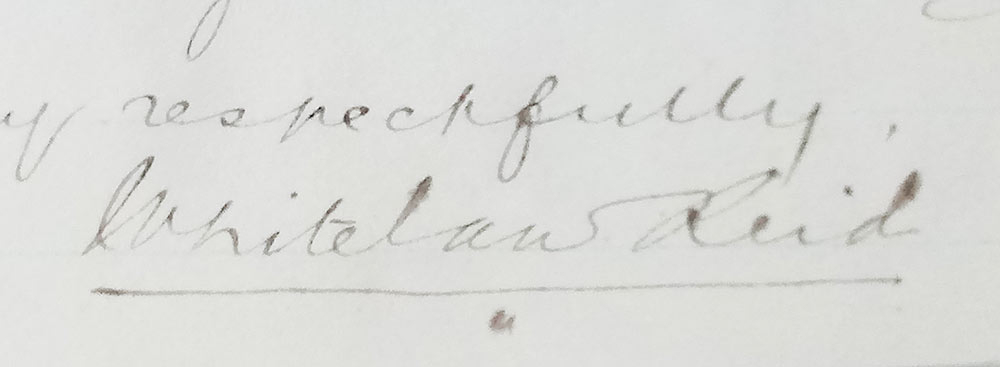 y respectfully,
Whitelaw Reid